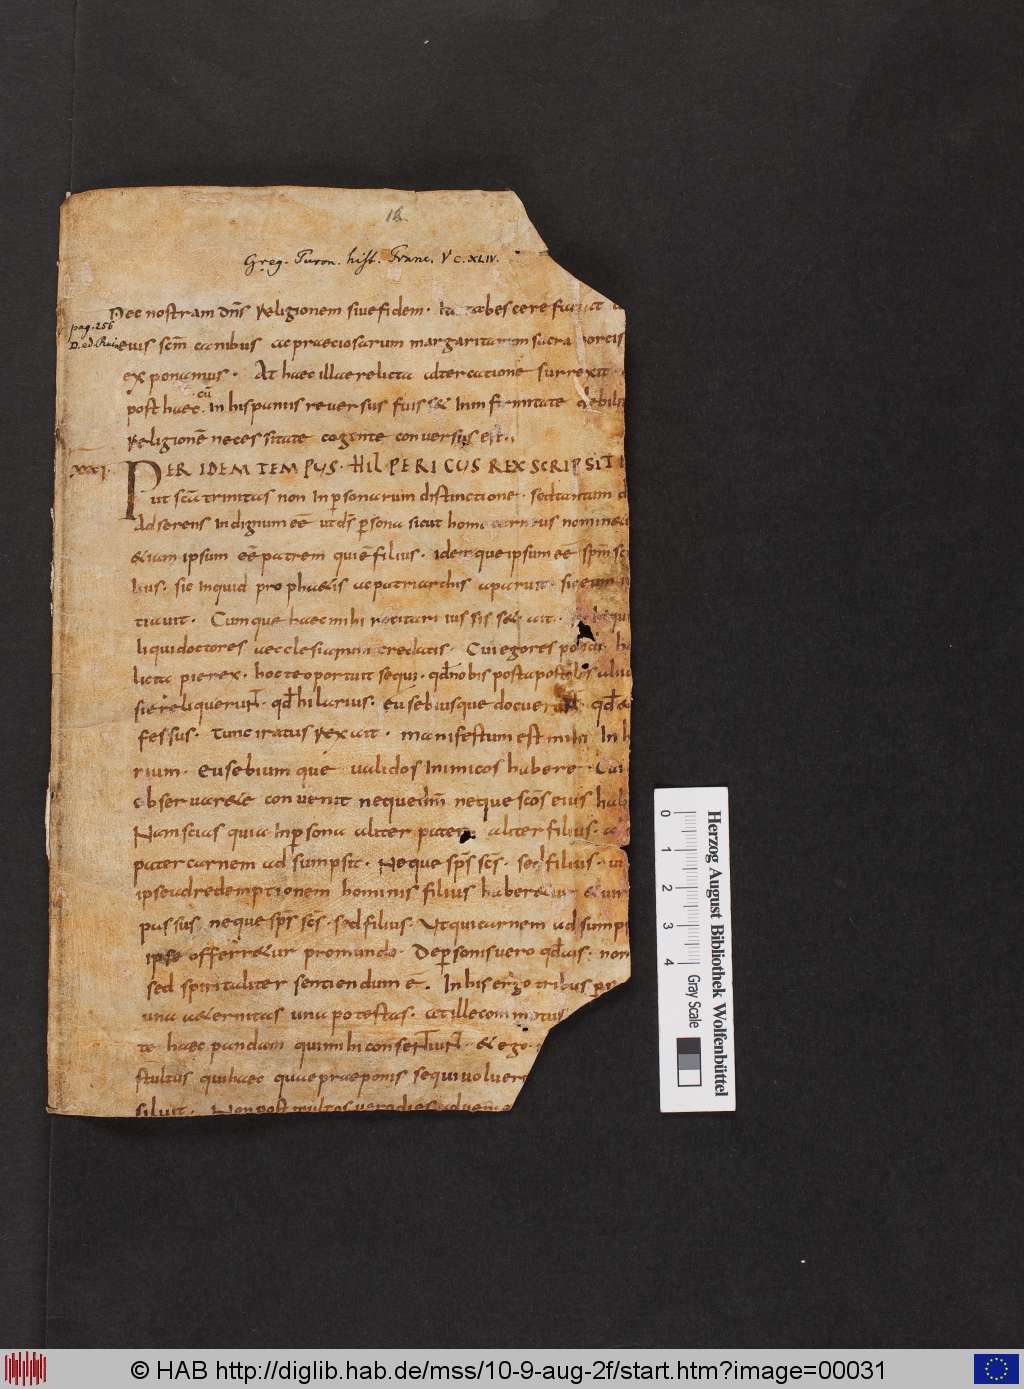 18.
Greg. Turon. hist. Franc. V c. XLIV.
Nec nostram dn̄s Religionem siue fidem. Ita tabescere faciat
pag. 256
D. ed. Ruin.
eius scm̄ canibus ac praeciosarum margaritarum sacra porcis
exponamus. At haec illa relicta altercatione surrexit
post haec. cū In hispaniis reuersus fuis& Infirmitate debilit
Religionē necessitate cogente conuersus est.
XXXI. PER IDEM TEMPUS. HILPERICUS REX SCRIPSIT
ut scā trinitas non In personarum distinctione. sed tantum
Adserens Indignum eē ut ds̄ persona sicut homo carneus nomin&
&iam ipsum eē patrem qui ē filius. idemque ipsum eē spm̄
lius. sic Inquid prophaetis ac patriarchis aparuit. sic eum
tiauit. Cumque haec mihi recitari iussiss& ait.
liqui doctores aecclesiarum credatis. Cui ego respondi
licta pie rex. hoc te oportuit sequi. qd̄ nobis post apostolos alii
sie reliquerunt. qd̄ hilarius. eusebiusque docuerunt. qd̄
fessus. tunc iratus Rex ait. manifestum est mihi In h
rium. eusebiumque ualidos Inimicos habere. Cui
obseruare te conuenit neque dm̄ neque scōs eius hab
Nam scias quia In persona aliter pater aliter filius.
pater carnem adsumpsit. Neque sps̄ scs̄. sed filius.
ipse ad redemptionem hominis filius haber&ur & uir
passus neque sps̄ scs̄. sed filius. Ut qui carnem adsump
ipse offerr&ur pro mundo. De personis uero qd̄ ais. non
sed spiritaliter sentiendum ē. In his ergo tribus pers
una aeternitas una potestas. at ille commotus
te haec pandam qui mihi consentiunt. & ego
stultus qui haec quae praeponis sequi uoluer
siluit. Non post multos uero dies adueni
Herzog August Bibliothek Wolfenbüttel
0 1 2 3 4
Gray Scale
© HAB http://diglib.hab.de/mss/10-9-aug-2f/start.htm?image=00031